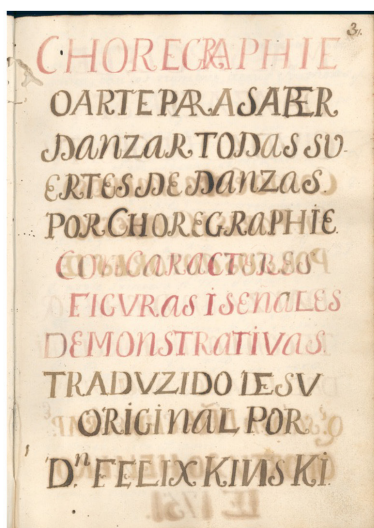 31.
CHOREGRAPHIE
O ARTE PARA SABER
DANZAR TODAS SU-
ERTES DE DANZAS
POR CHOREGRAPHIE.
CON CARACTERES
FIGVRAS I SEÑALES
DEMONSTRATIVAS.
TRADVZIDO DE SV
ORIGINAL POR
D.ⁿ FELIX KINSKI.